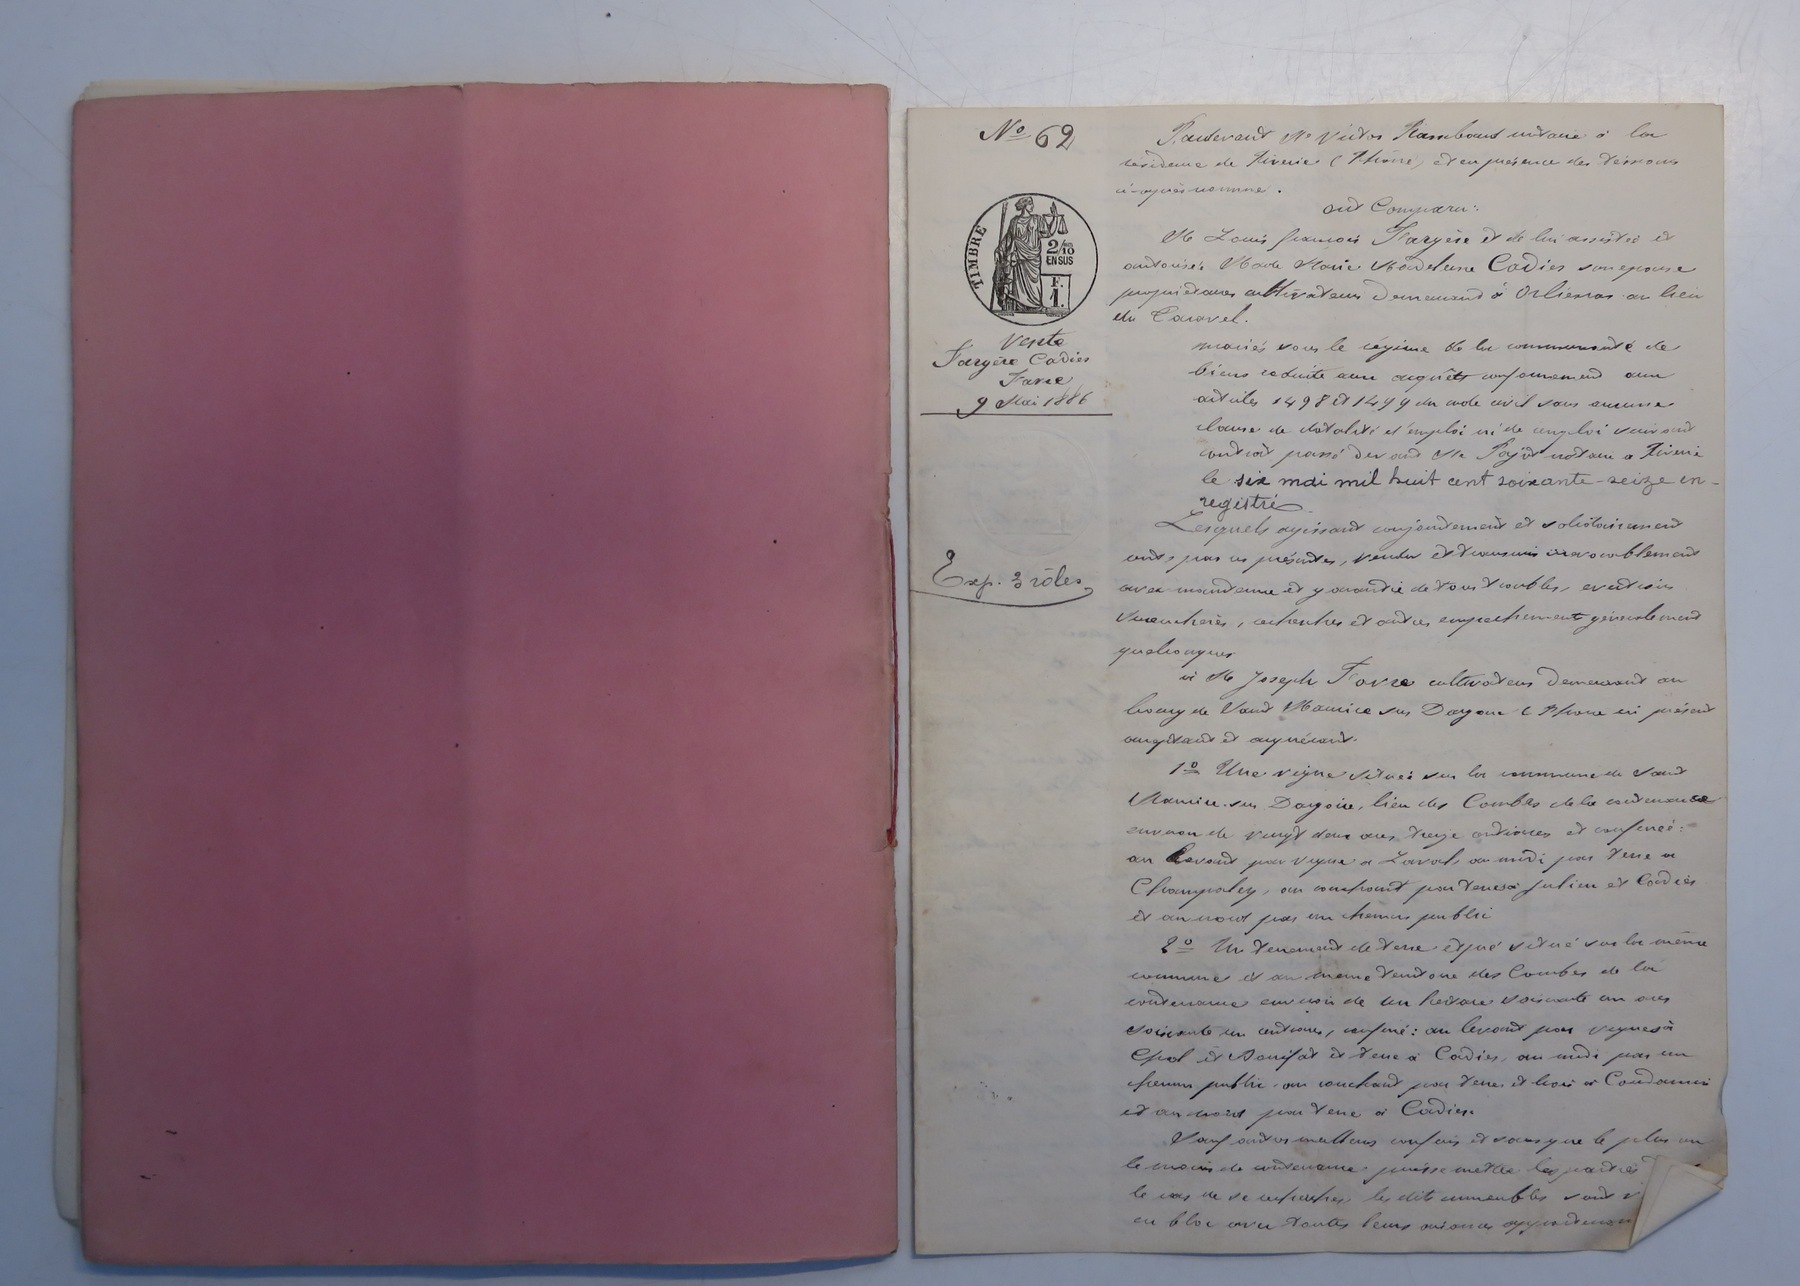 No 62
TIMBRE
2/10
EN SUS
F.
1.
Vente
Fargère Cadier
Favre
9 Mai 1886
Exp. 3 rôles
Pardevant Me Victor Rambaud notaire à la
résidence de Riverie (Rhône) et en présence des témoins
ci-après nommés.
ont Comparu:
M Louis françois Fargère et de lui assistée et
autorisée Made Marie Madeleine Cadier son épouse
propriétaires cultivateurs demeurant à Orliénas au lieu
du Caravel.
mariés sous le régime de la communauté de
biens réduite aux acquêts conformément aux
articles 1498 et 1499 du code civil sans aucune
clause de dotalité d'emploi ni de remploi suivant
contrat passé devant Me notaire a Riverie
le six mai mil huit cent soixante-seize en-
registré
Lesquels agissant conjointement et solidairement
ont, par ces présentes, vendu et transmis irrévocablement
avec maintenue et garantie de tous troubles, évictions
surenchères, recherches et autres empêchement généralement
quelconques
à M Joseph Favre cultivateur demeurant au
bourg de Saint Maurice sur Dargoire (Rhone ici présent
acceptant et acquéreur.
1o Une vigne située sur la commune de Saint
Maurice sur Dargoire, lieu des Combes de la contenance
environ de vingt deux ares treize centiares et confinée:
au Levant par vigne a Laval, au midi par terre a
Champaley, au couchant par terres à Julien et Cadier
et au nord par un chemin public
2o Un tenement de terre et pré situé sur la même
commune et au même territoire des Combes de la
contenance environ de un hectare soixante un ares
soixante un centiares, confiné: au levant par vignes à
et et terre à Cadier, au midi par un
chemin public, au couchant par terre et bois à Condamin
et au nord par terre à Cadier.
Sauf autres meilleurs confins et sans que le plus ou
le moins de contenance puisse mettre les parties
le cas de se rechercher, les dits immeubles sont
en bloc avec toutes leurs aisances